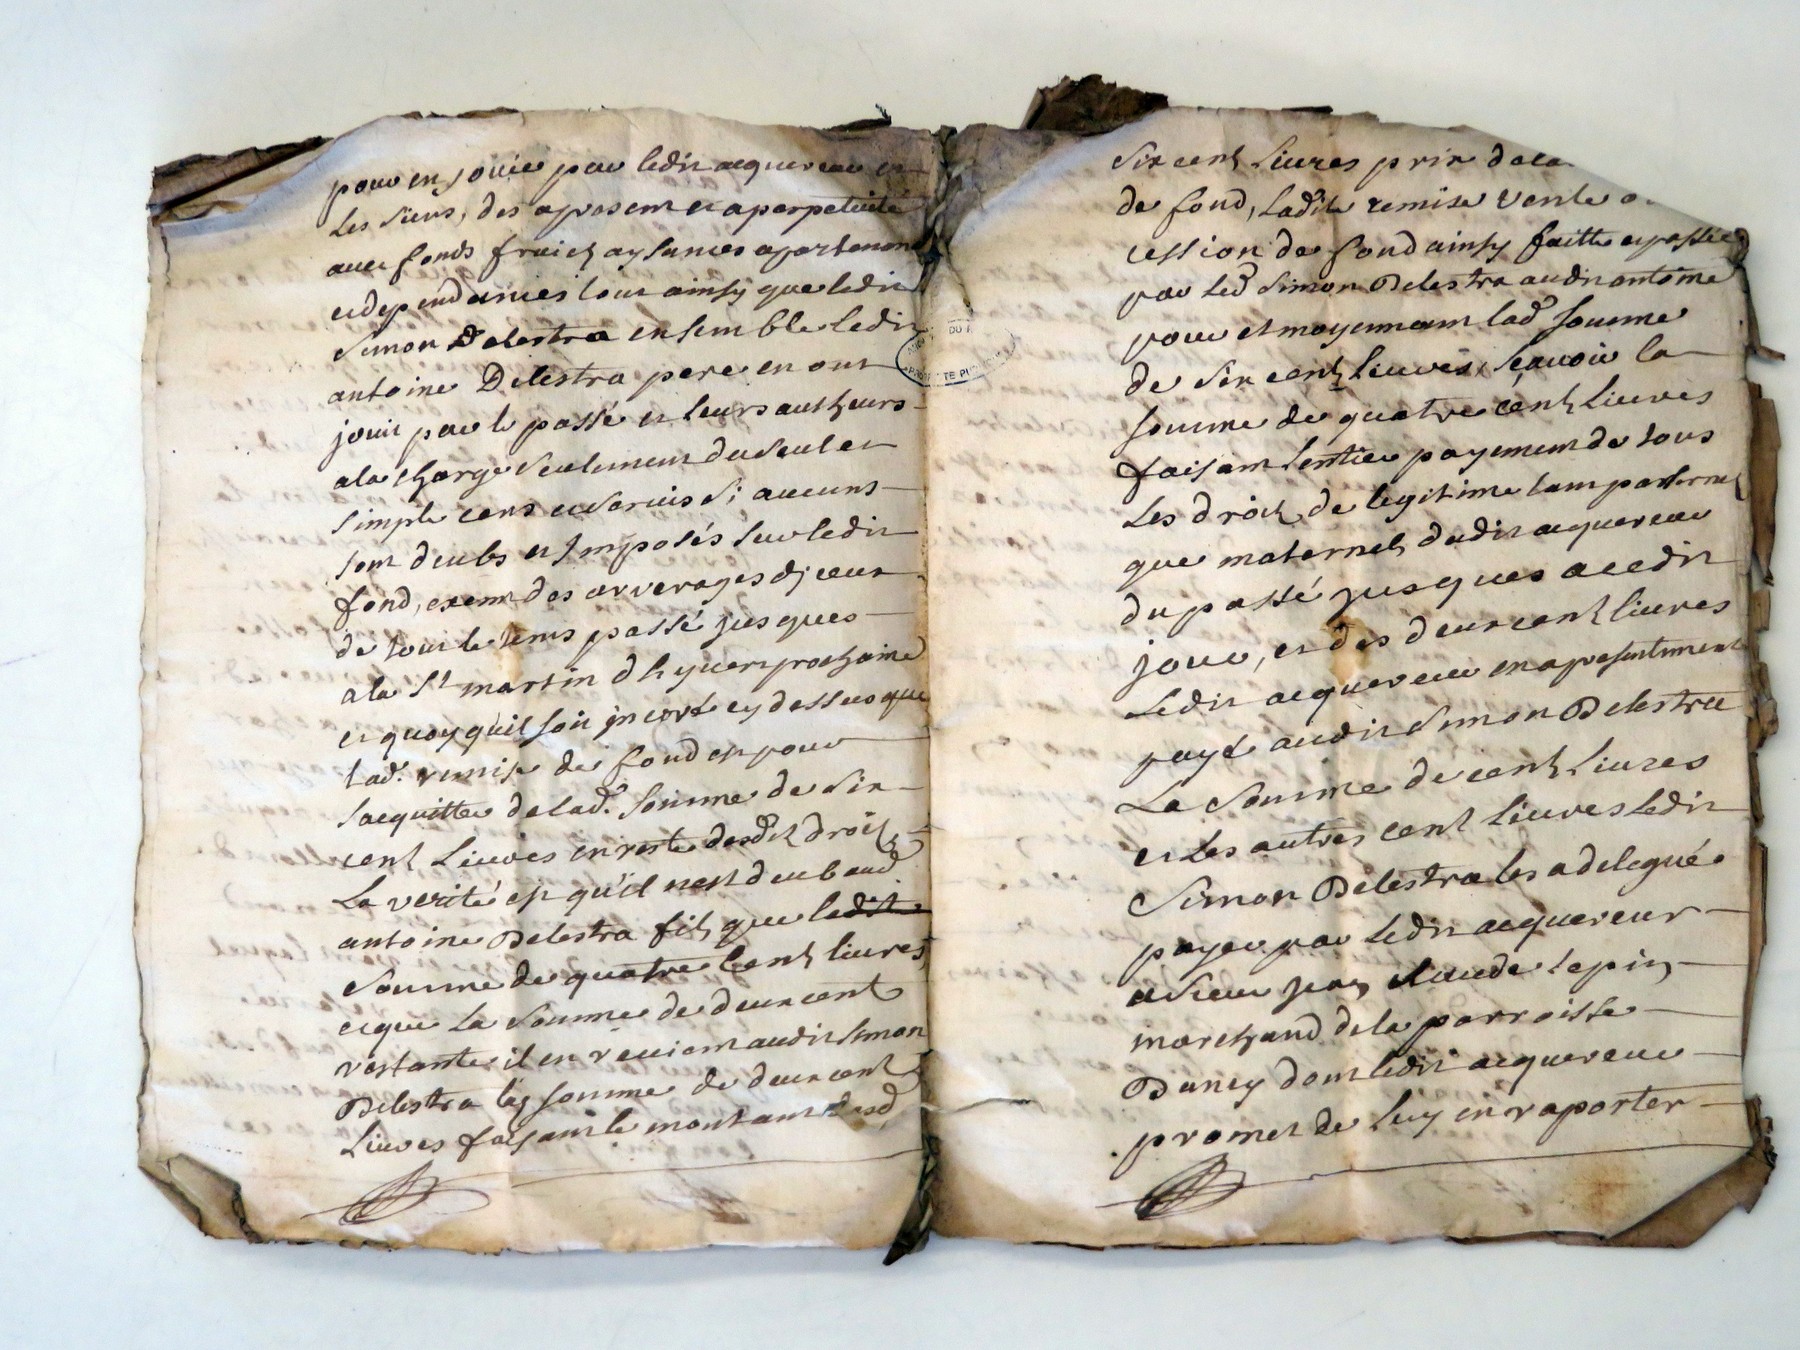 pour en jouir par ledit acquereur et
les siens, des apresent et a perpetuité
avec fonds fruicts aysances apartenan
et dependances tout ainsy que ledit
Simon Delestra ensemble ledit
antoine Delestra pere en ont
jouit par le passé et leurs autheurs
a la charge seulement du seul et
simple cens et servis si aucuns
sont deubs et Imposés sur ledit
fond, exempt des arrerages d'iceux
de tout le tems passé jusques
a la St martin d'hyver prochaine
et quoyqu'il soit inceré cy dessus que
lad. remise de fond est pour
s'acquitter de lad. somme de six
cent livres en reste desdts droits
La verité est qu'il n'est deub aud
antoine Delestra fils que ledit
somme de quatre Cent livres
et que La somme de deux cent
restante il en revient audit Simon
Delestra lad somme de deux cent
Livres faisant le montant desd
six cent livres prix de la
de fond, Ladite remise vente
cession de fond ainsy faitte et passée
par Led Simon Delestra audit antoine
pour et moyennant lad somme
de six cent livres, sçavoir la
somme de quatre cent livres
faisant l'entier payement de tous
Les droits de legitime tant paternel
que maternels dudit acquereur
du passé jusques a cedit
jour, et des deux cent livres
Ledit acquereur en a presentement
payé audit Simon Delestra
La somme de cent livres
et Les autres cent livres ledit
Simon Delestra les a delegué
payer par ledit acquereur
a sieur jean claude lepin
marchand de la parroisse
Duncy dont ledit acquereur
promet de luy en raporter
DU
TE PU